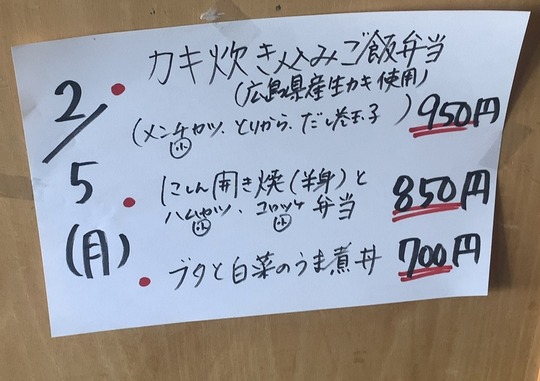 2/5(月)
カキ炊き込みご飯弁当
(広島県産生カキ使用)
(メンチカツ、とりから、だし巻玉子) 950円
小
にしん開き焼(半身)と
ハムカツ、コロッケ弁当 850円
小 小
ブタと白菜のうま煮丼 700円